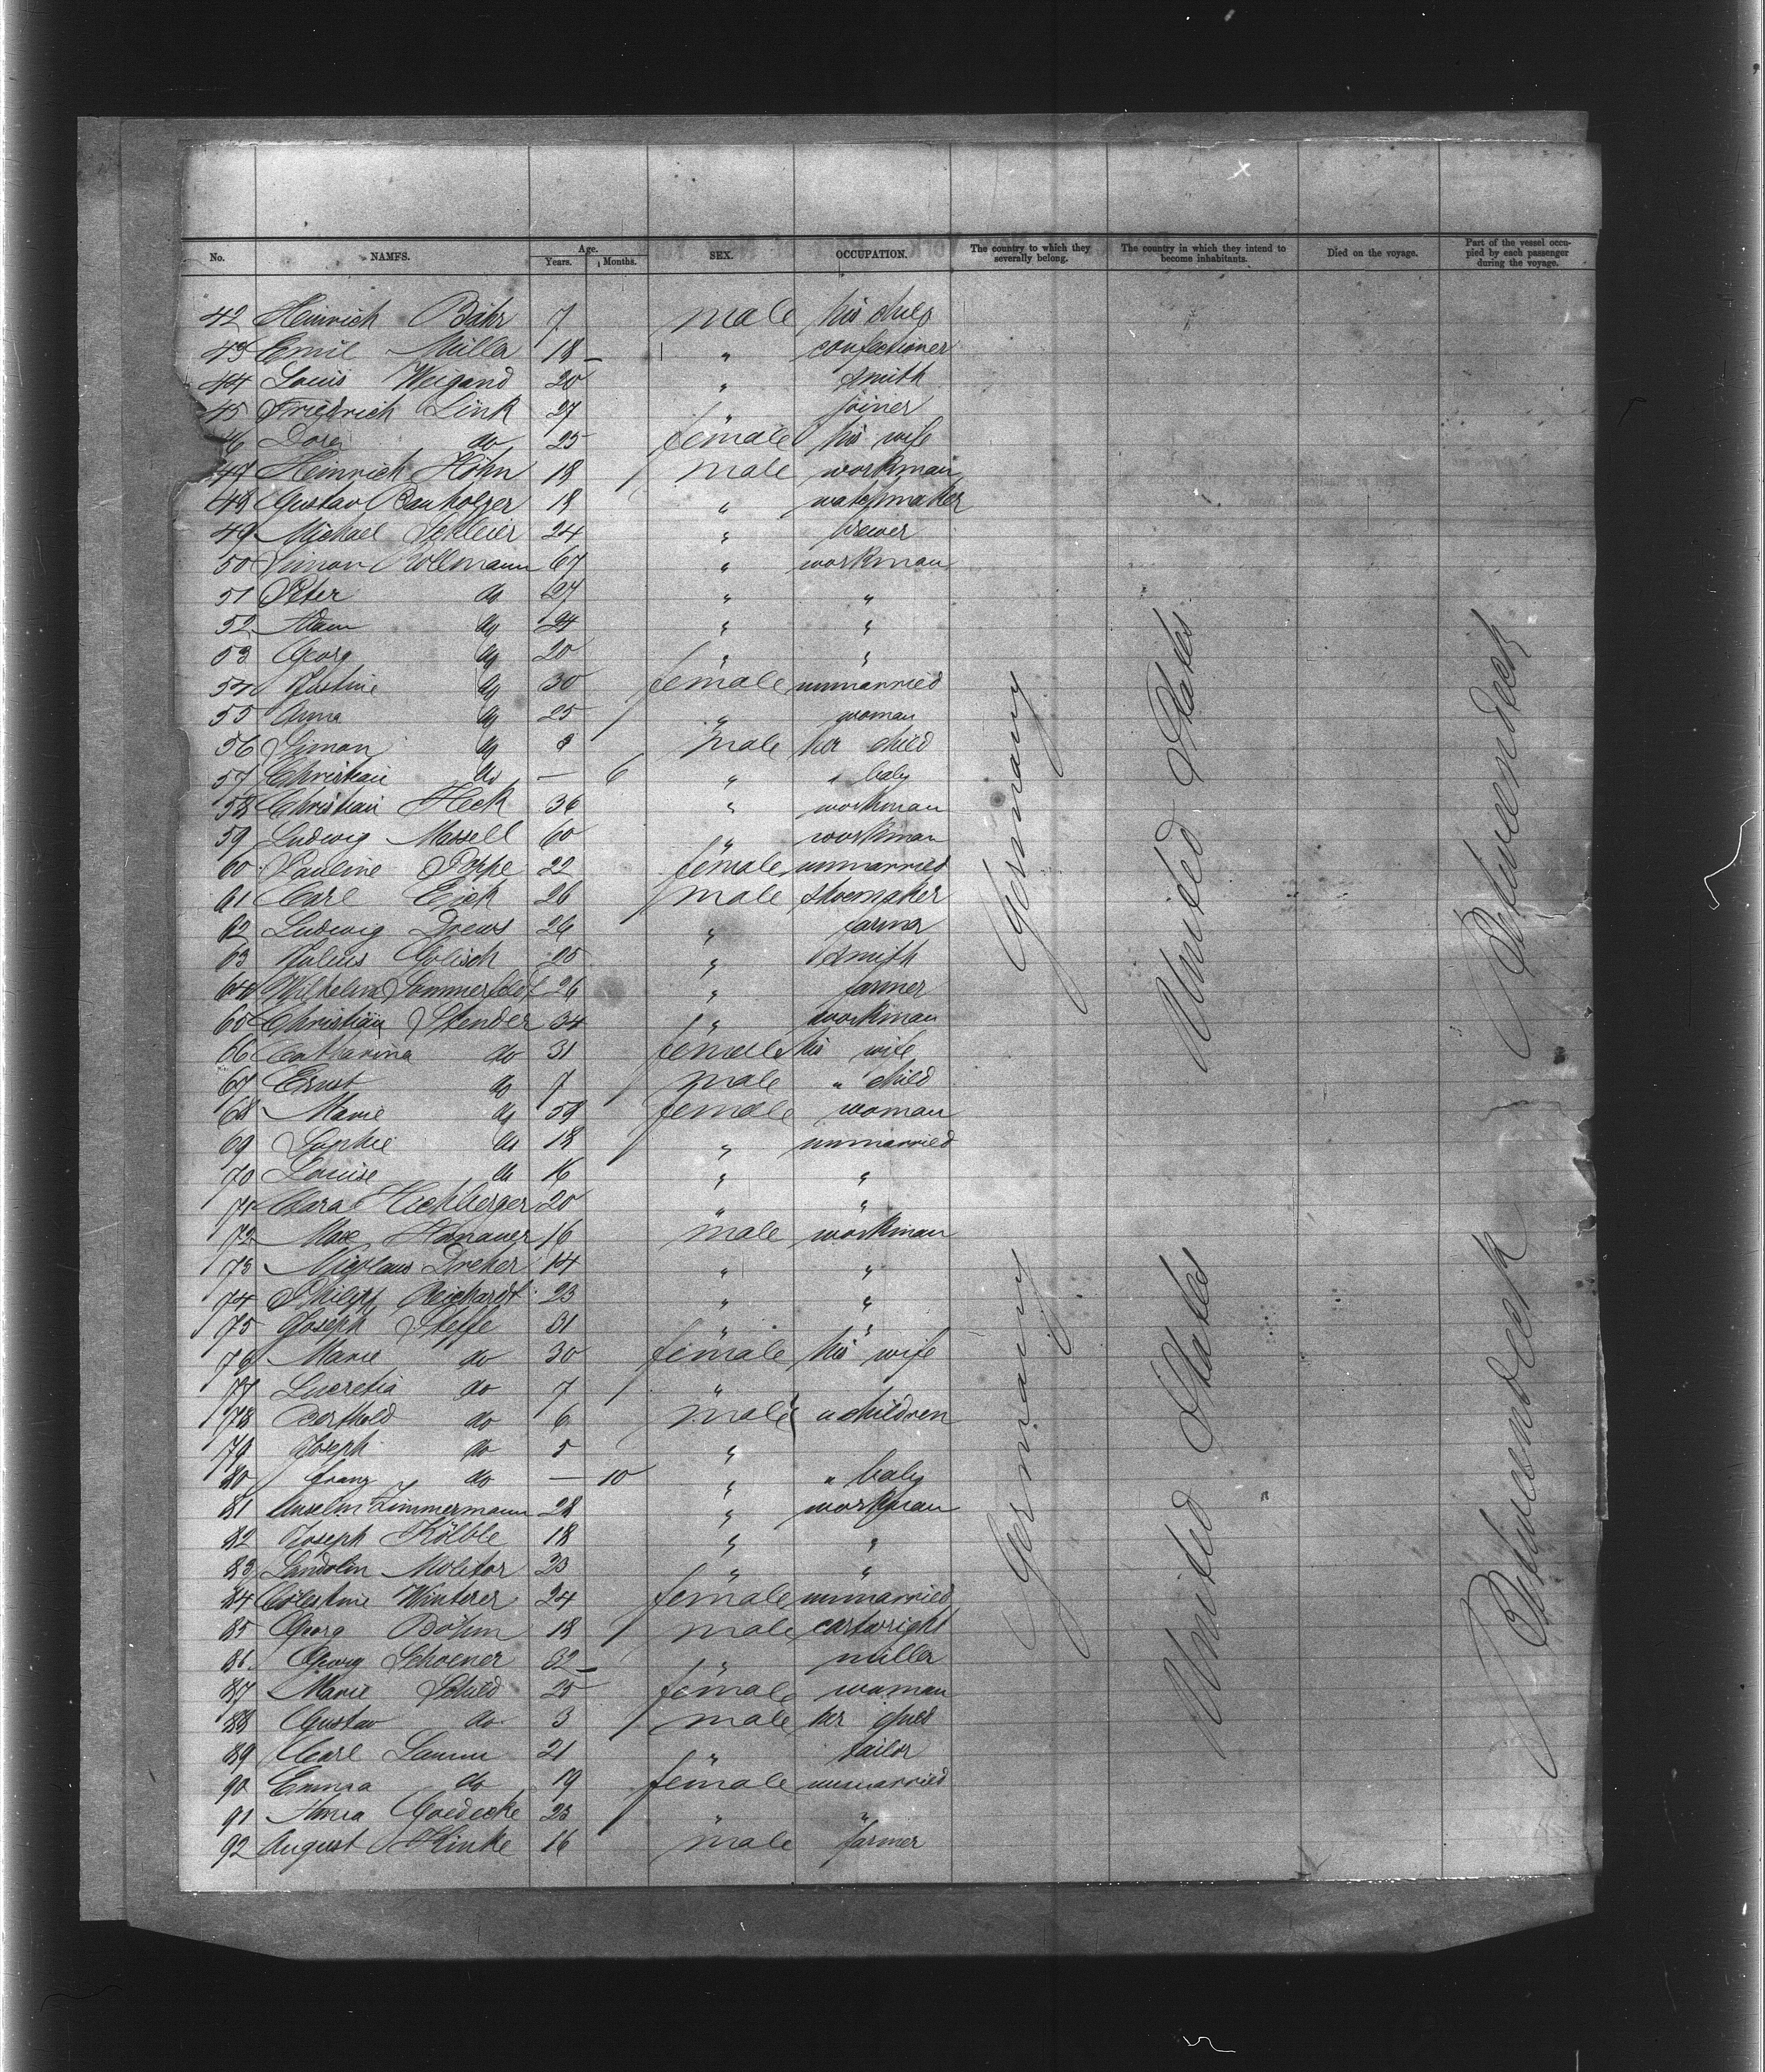 No. NAMES. Age. Years. Months. SEX. OCCUPATION. The country to which they severally belong. The country in which they intend to become inhabitants. Died on the voyage. Part of the vessel occupied by each passenger during the voyage.
42 Heinrich Bähr 7 male his child
43 Emil Müller 18 " confectioner
44 Louis Weigand 20 " smith
45 Friedrich Link 27 " joiner
46 Dora do 25 female his wife
47 Heinrich Höhn 18 male workman
48 Gustav Banholzer 18 " watchmaker
49 Michael Schleier 24 " brewer
50 Simon Kollmann 67 " workman
51 Peter do 27 " "
52 Adam do 24 " "
53 Georg do 20 " "
54 Justine do 30 female unmarried
55 Anna do 25 " woman
56 Simon do 3 male her child
57 Christian do — 6 " " baby
58 Christian Heck 36 " workman
59 Ludwig Massell 60 " workman
60 Pauline Poppe 22 female unmarried
61 Carl Eick 26 male shoemaker
62 Ludwig Drews 26 " farmer
63 Julius Golisch 25 " smith
64 Wilhelm Sommerfeldt 26 " farmer
65 Christian Stender 34 " workman
66 Catharina do 31 female his wife
67 Ernst do 7 male " child
68 Marie do 59 female woman
69 Sophie do 18 " unmarried
70 Louise do 16 " "
71 Clara Hechberger 20 " "
72 Max Hanauer 16 male workman
73 Nicolaus Dreher 14 " "
74 Philipp Reichardt 23 " "
75 Joseph Steffe 31 " "
76 Marie do 30 female his wife
77 Lucretia do 7 "
78 Berthold do 6 male " children
79 Joseph do 5 "
80 Franz do — 10 " " baby
81 Anselm Zimmermann 28 " workman
82 Joseph Kölble 18 " "
83 Landolin Molitor 23 " "
84 Cölestine Winterer 24 female unmarried
85 Georg Böhm 18 male cartwright
86 Georg Schoener 32 " miller
87 Marie Schild 25 female woman
88 Gustav do 3 male her child
89 Carl Lamm 21 " tailor
90 Emma do 19 female unmarried
91 Anna Goedecke 23 " "
92 August Hinke 16 male farmer
Germany United States Betweendeck
Germany United States Betweendeck